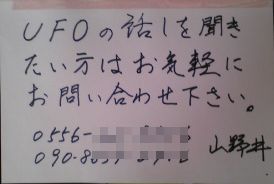 UFOの話しを聞き
たい方はお気軽に
お問い合わせ下さい。
0556-
090-8
山野井